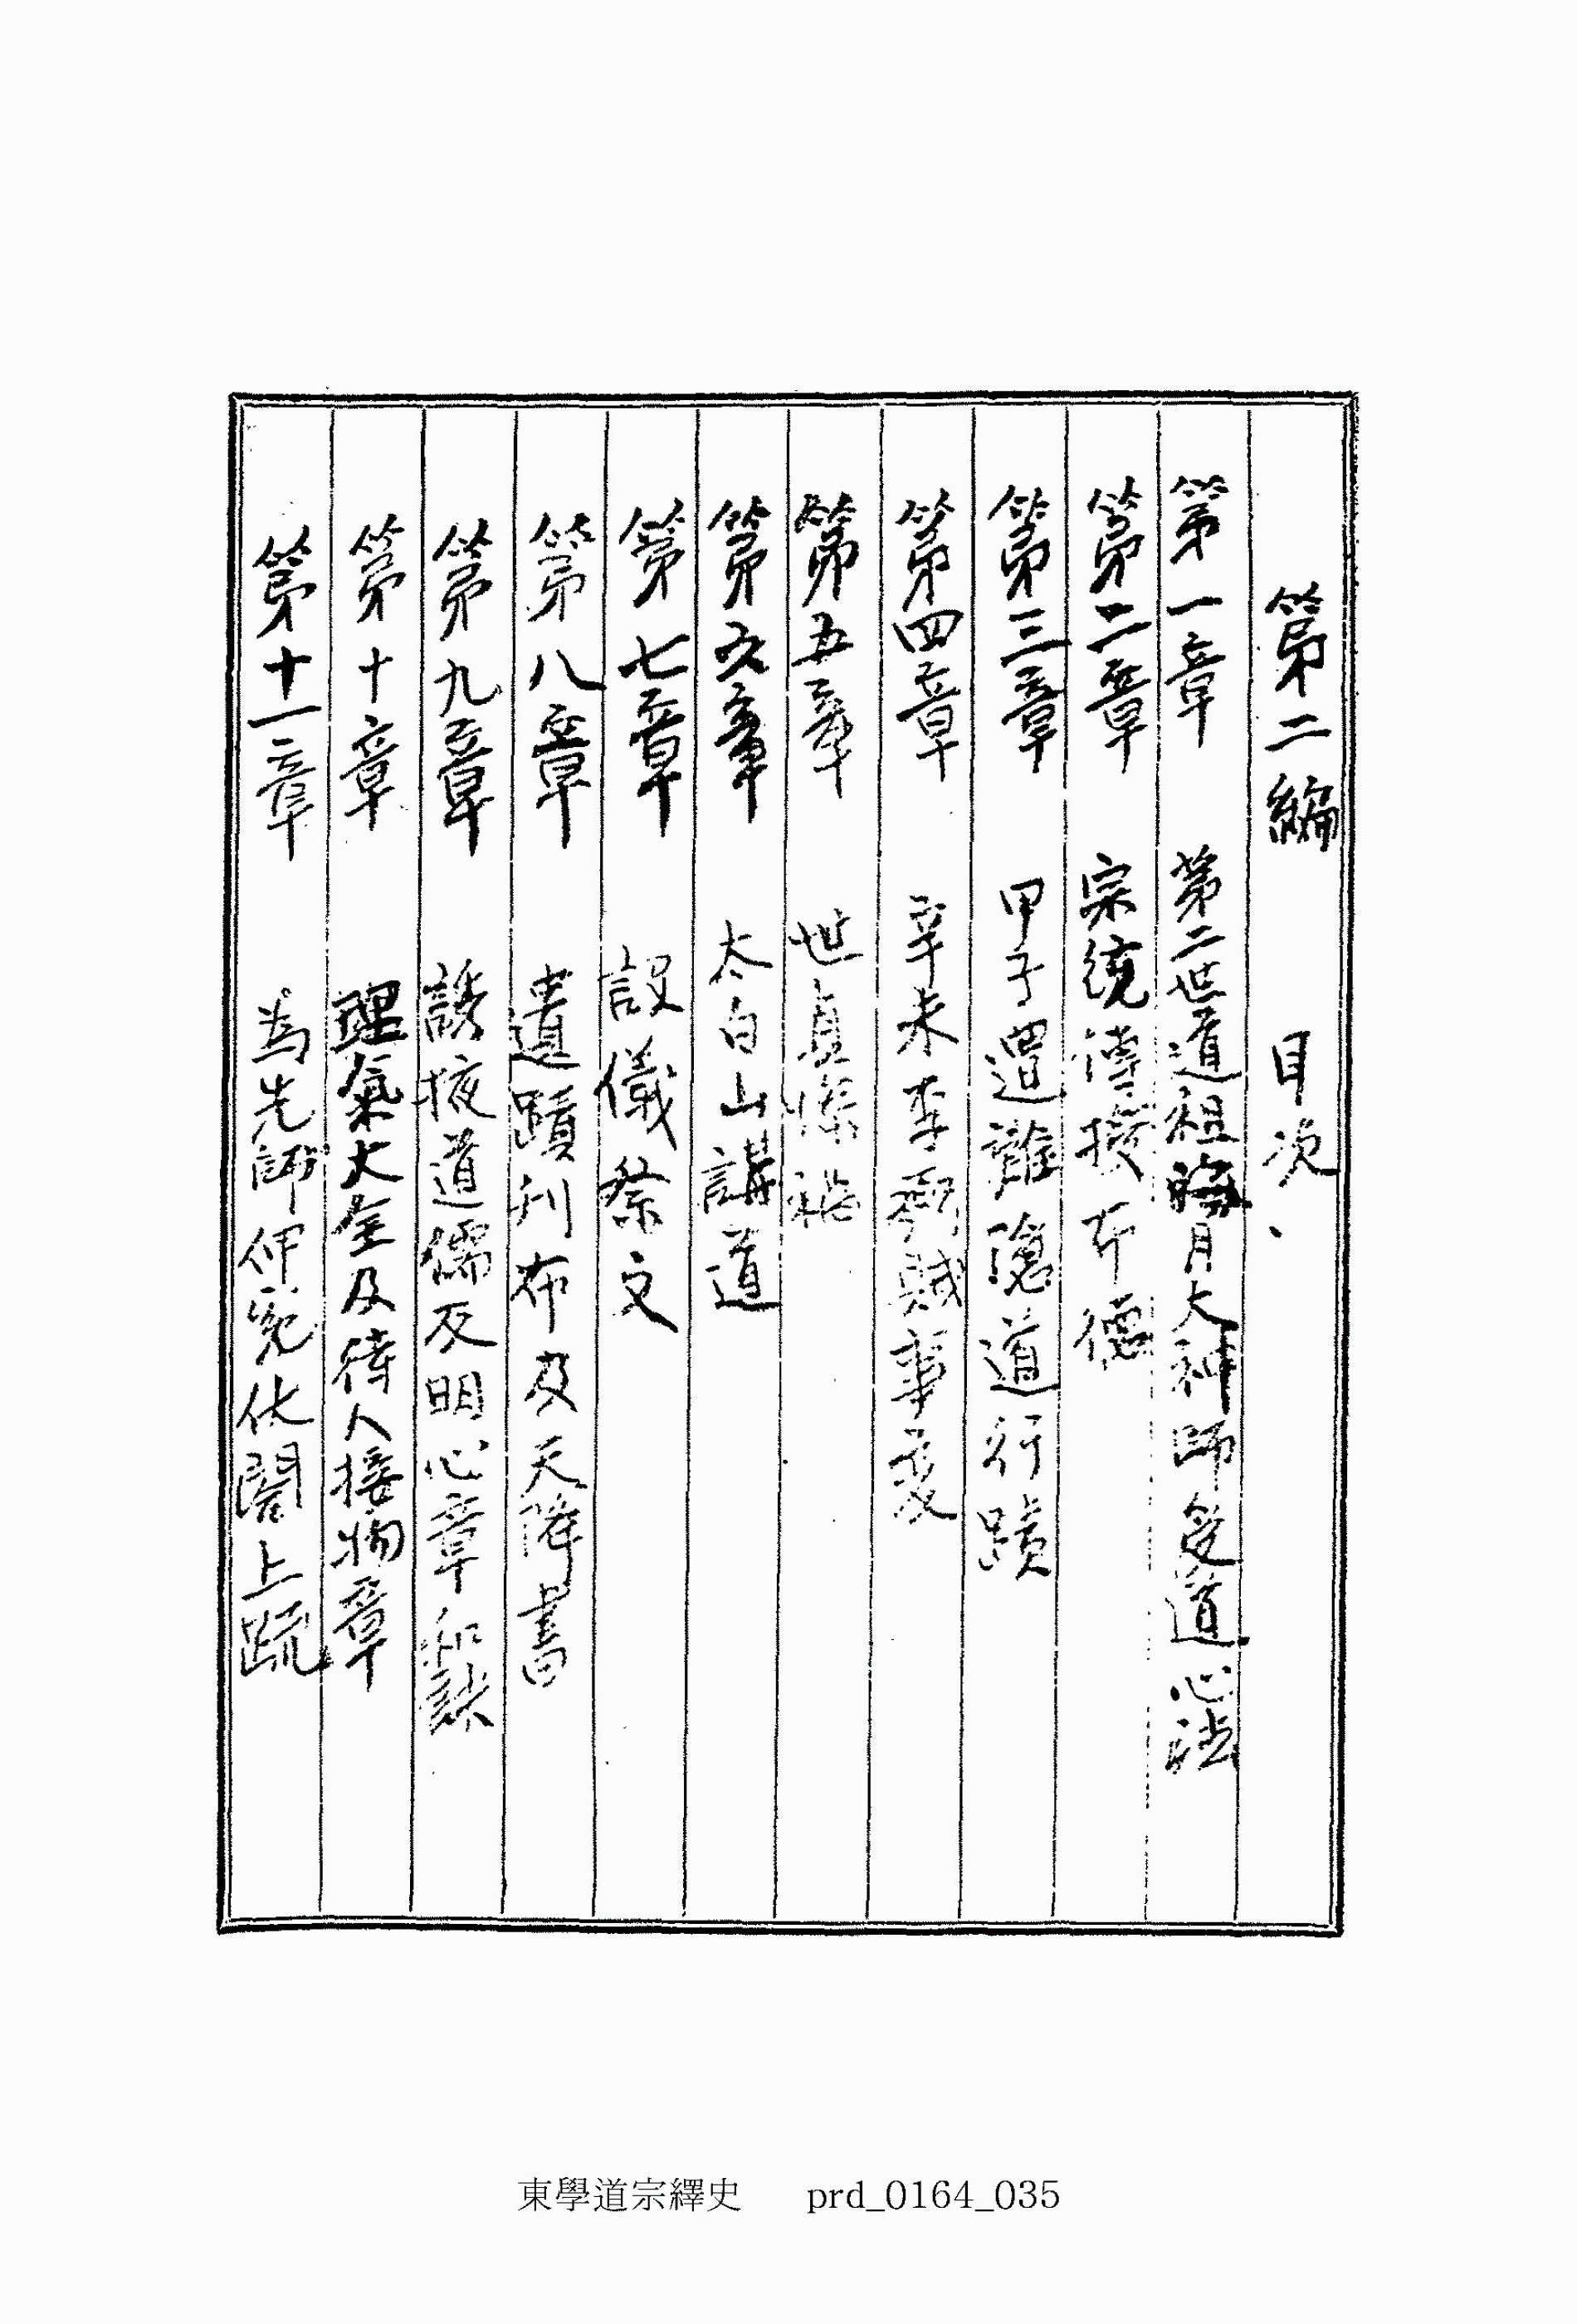 第二編 目次、
第一章 第二世道祖海月大神師受道心法
第二章 宗統傳授布德
第三章 甲子遭難隱道行蹟
第四章 辛未李弼賊事変
第五章 世貞
第六章 太白山講道
第七章 設儀祭文
第八章 遺蹟刊布及天降書
第九章 誘掖道儒及明心章和訣
第十章 理氣大全及待人接物章
第十一章 為先師伸冤伏閤上疏
東學道宗繹史 prd_0164_035